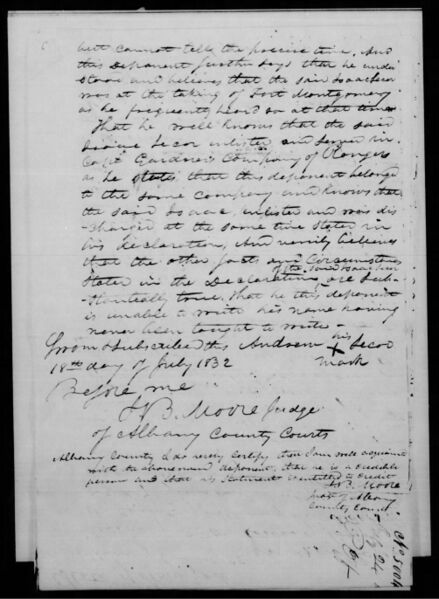 but cannot tells the precise time. And
this deponent further says that he under
stood and believes that the said Isaac Secor
was at the taking of Fort Montgomery
as he frequently heard so at that time
That he well knows that the said
Isaac Secor enlisted and served in
Capt Gardner's Company of Rangers
as he states that this deponent belonged
to the same company and knows that
the said Isaac, enlisted and was dis
-charged at the same time stated in
his declaration, And verily believes
that the other facts and Circumstances
of the said Isaac Secor
stated in the Declaration are sub-
-stantially true. That he this deponent
is unable to write his name having
never been taught to write -
Sworn & subscribed this Andrew his X mark Secor
18th day of July 1832
Before me
B. Moore Judge
of Albany County Courts
Albany County I do hereby certify that I am well acquainted
with the above named deponent, that he is a credible
person and that his statement is entitled to credit
B. Moore
Judge of Albany
County Courts